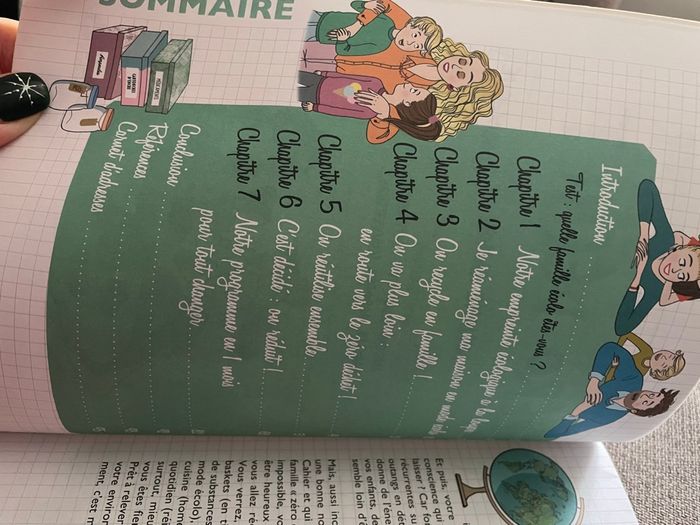 SOMMAIRE
Introduction
Test : quelle famille écolo êtes-vous ?
Chapitre 1 Notre empreinte écologique à la
Chapitre 2 Je réaménage ma maison en mode
Chapitre 3 On recycle en famille !
Chapitre 4 On va plus loin :
en route vers le zéro déchet !
Chapitre 5 On réutilise ensemble
Chapitre 6 C'est décidé : on réduit !
Chapitre 7 Notre programme en 1 mois
pour tout changer
Conclusion
Références
Carnet d'adresses
Et puis, votre
conscience qui
laisser ? Car fo
récurrentes su
ouragan en dét
donne de l'éne
vos enfants, de
semble loin d'
Mais, aussi inc
une bonne no
Cahier et qui
famille « zéro
impossible, vo
être heureux
vous allez ré
Vous verrez,
baskets (en t
de substances
mode écolo),
cuisine (hom
quotidien (ré
surtout, mieu
vous êtes fie
Prêt à relever
votre environ
ment, c'est m